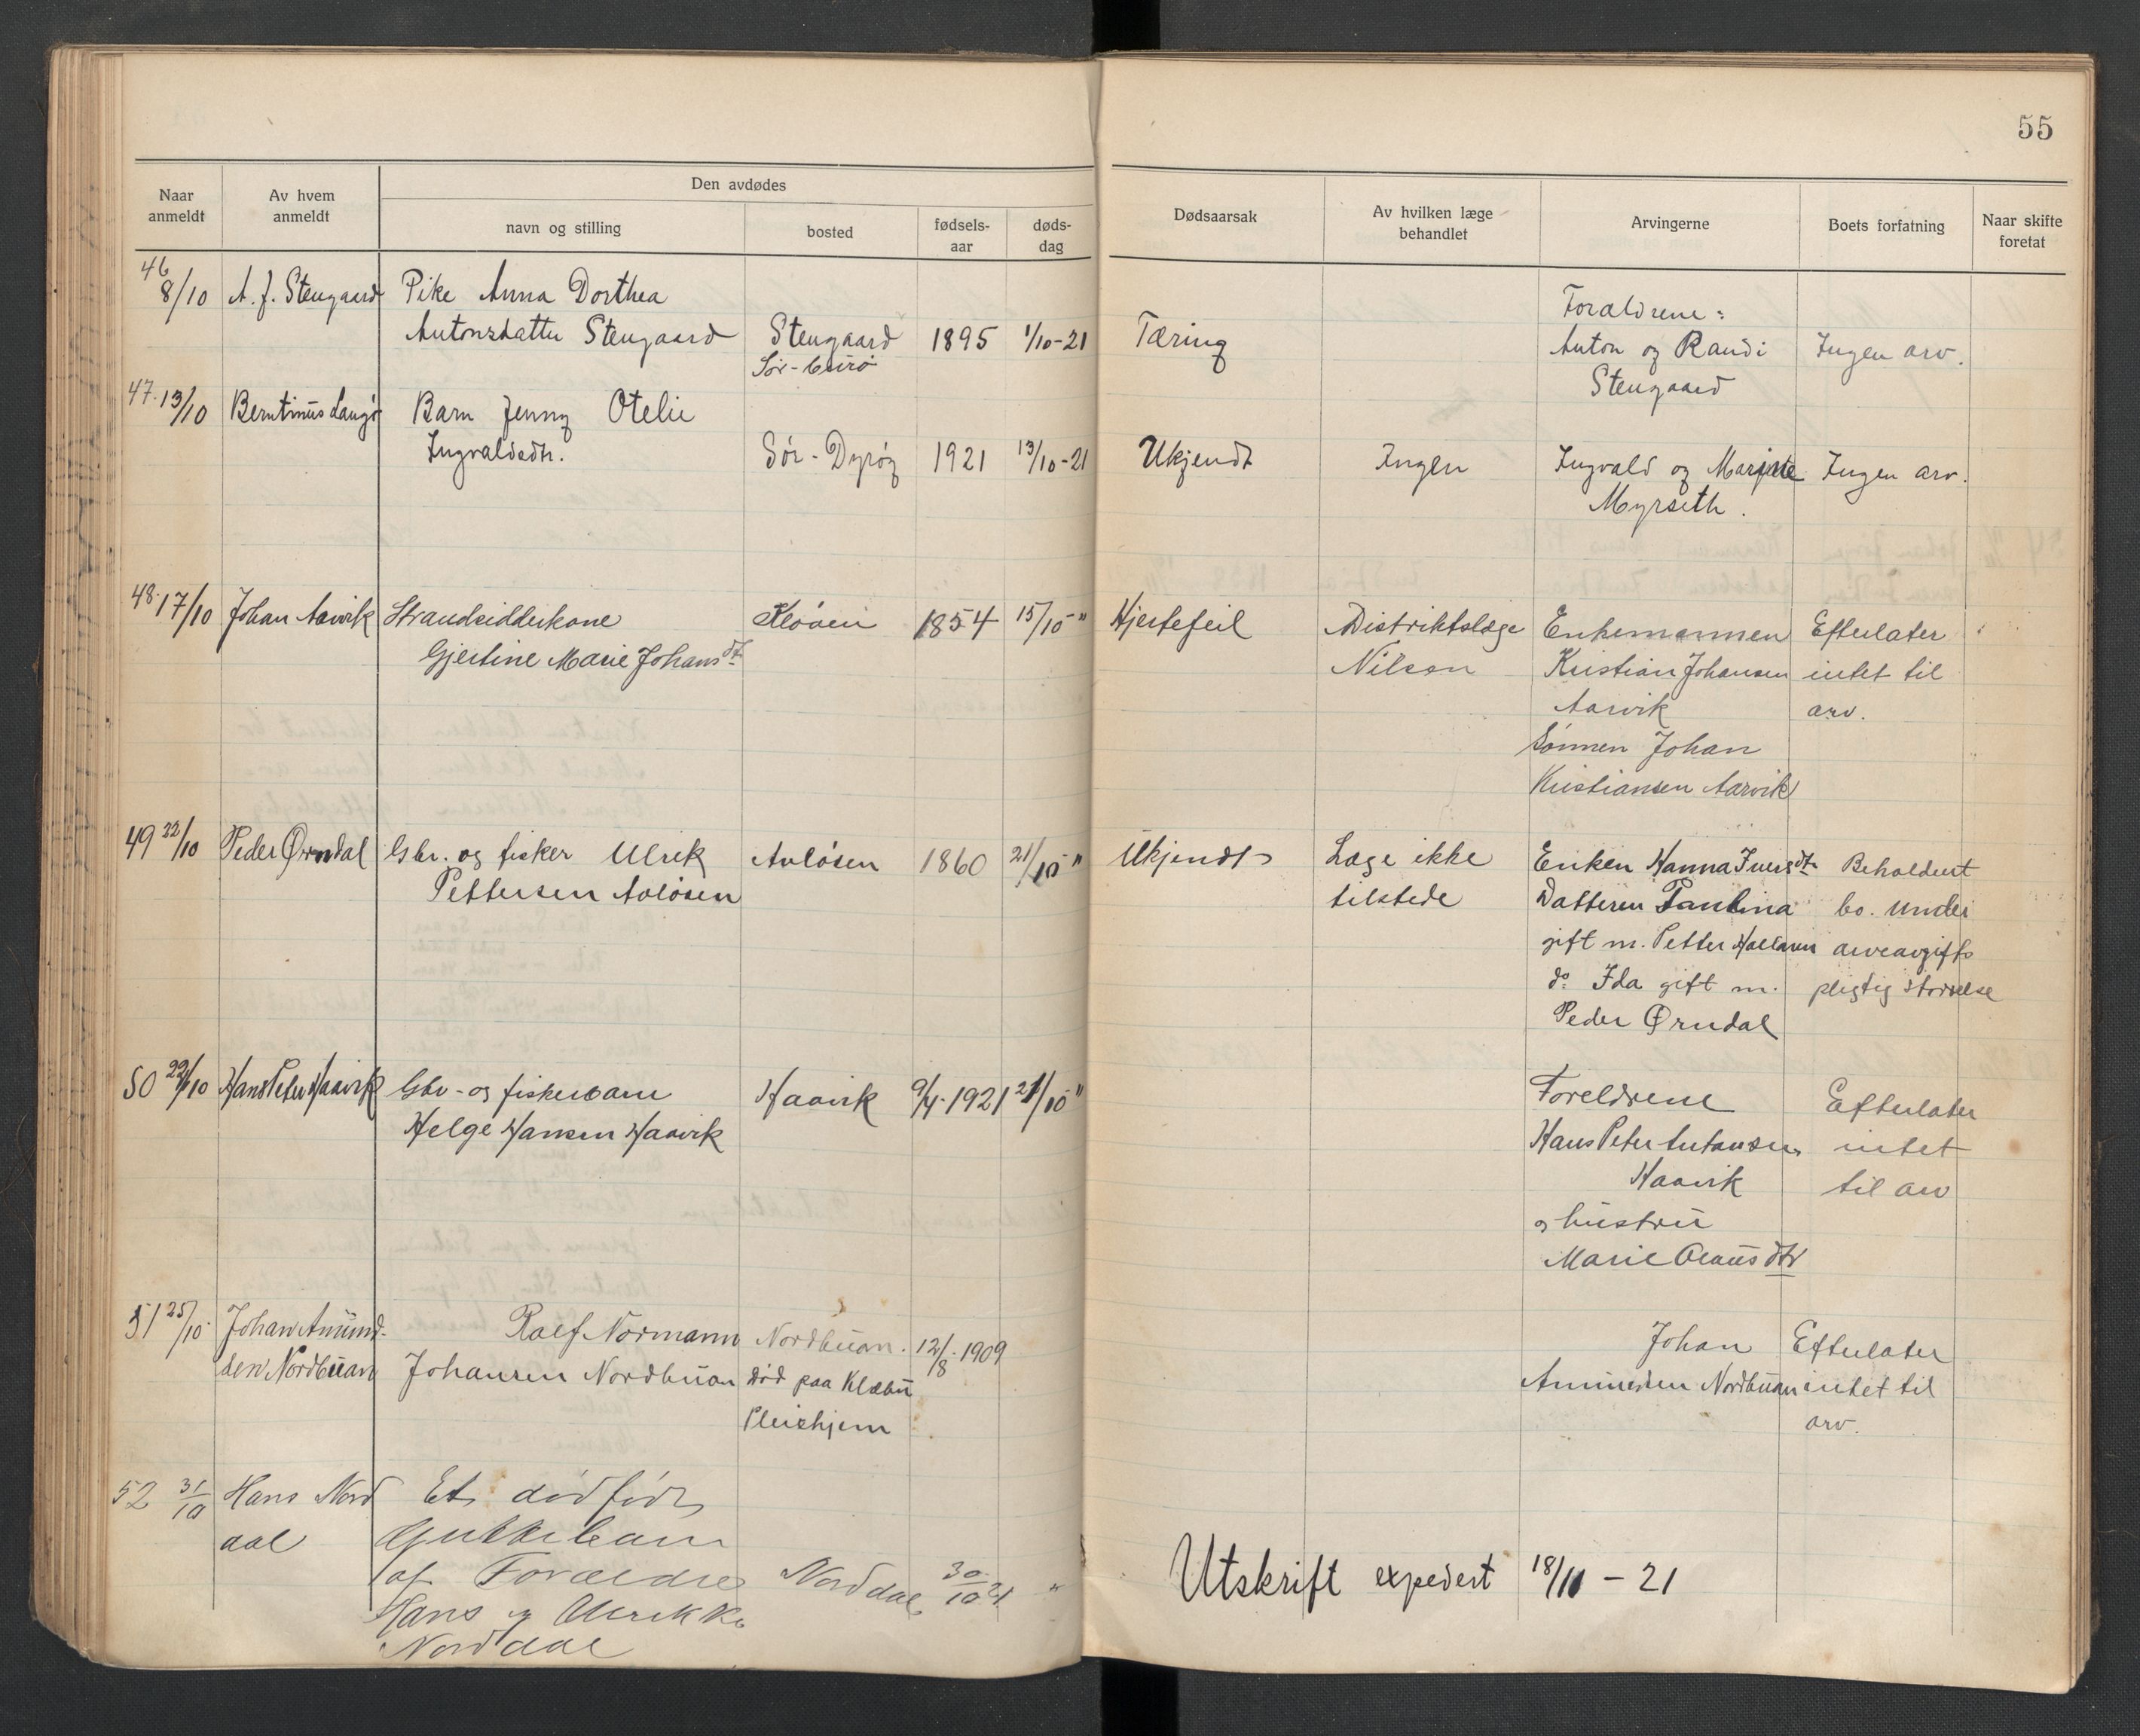 55
Naar anmeldt
Av hvem anmeldt
Den avdødes
navn og stilling
bosted
fødsels-aar
døds-dag
Dødsaarsak
Av hvilken læge behandlet
Arvingerne
Boets forfatning
Naar skifte foretat
46 8/10 A. J. Stengaard Pike Anna Dorthea
Antonsdatter Stengaard Stengaard 1895 1/10-21 Tæring
Forældrene:
Anton og Randi Ingen arv.
Stengaard
47. 13/10 Berntinus Langø Barn Jenny Otelie
Ingvaldsdtr. Sør-Dyrøy 1921 13/10-21 Ukjendt Ingen Ingvald og Marine Ingen arv.
Myrseth.
48. 17/10 Johan Aarvik Strandsidderkone Kløven 1854 15/10 " Hjertefeil Distriktslæge Enkemannen Efterlater
Gjertine Marie Johansdtr Nilsen Kristian Johansen intet til
Aarvik arv.
Sønnen Johan
Kristiansen Aarvik
49 22/10 Peder Ørndal Gbr. og fisker Ulrik Avløsen 1860 21/10 " Ukjendt Læge ikke Enken Hanna Iversdtr Beholdent
Pettersen Avløsen tilstede Datteren Paulina bo. Under
gift m. Petter arveavgifts
do. Ida gift m. pligtig størrelse
Peder Ørndal
50 22/10 Hans Peter Haavik Gbr- og fiskerbarn Haavik 9/4-1921 21/10 " Foreldrene Efterlater
Helge Hansen Haavik Hans Peter Antonsen intet
Haavik til arv
og hustru
Marie Olausdtr
51 25/10 Johan Amund- Rolf Normann Nordbuan. 12/8-1909 Johan Efterlater
sen Nordbuan Johansen Nordbuan død paa Klæbu Amundsen Nordbuan intet til
Pleiehjem arv.
52 31/10 Hans Nord Et dødfødt
dal Guttebarn
af Forældre Norddal 30/10 21 "
Hans og Ulrikke
Norddal
Utskrift expedert 18/11 - 21